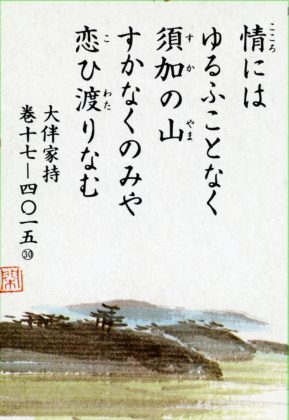 情には
ゆるふことなく
須加の山
すかなくのみや
恋ひ渡りなむ
大伴家持
巻十七―四〇一五㉚